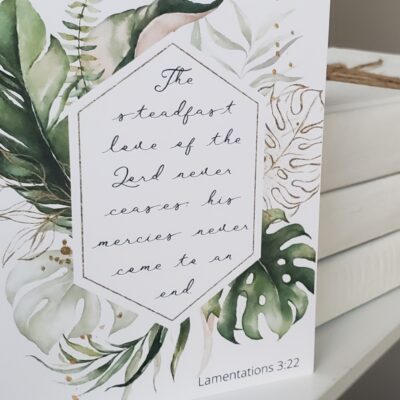 The
steadfast
love of the
Lord never
ceases, his
mercies never
come to an
end.
Lamentations 3:22